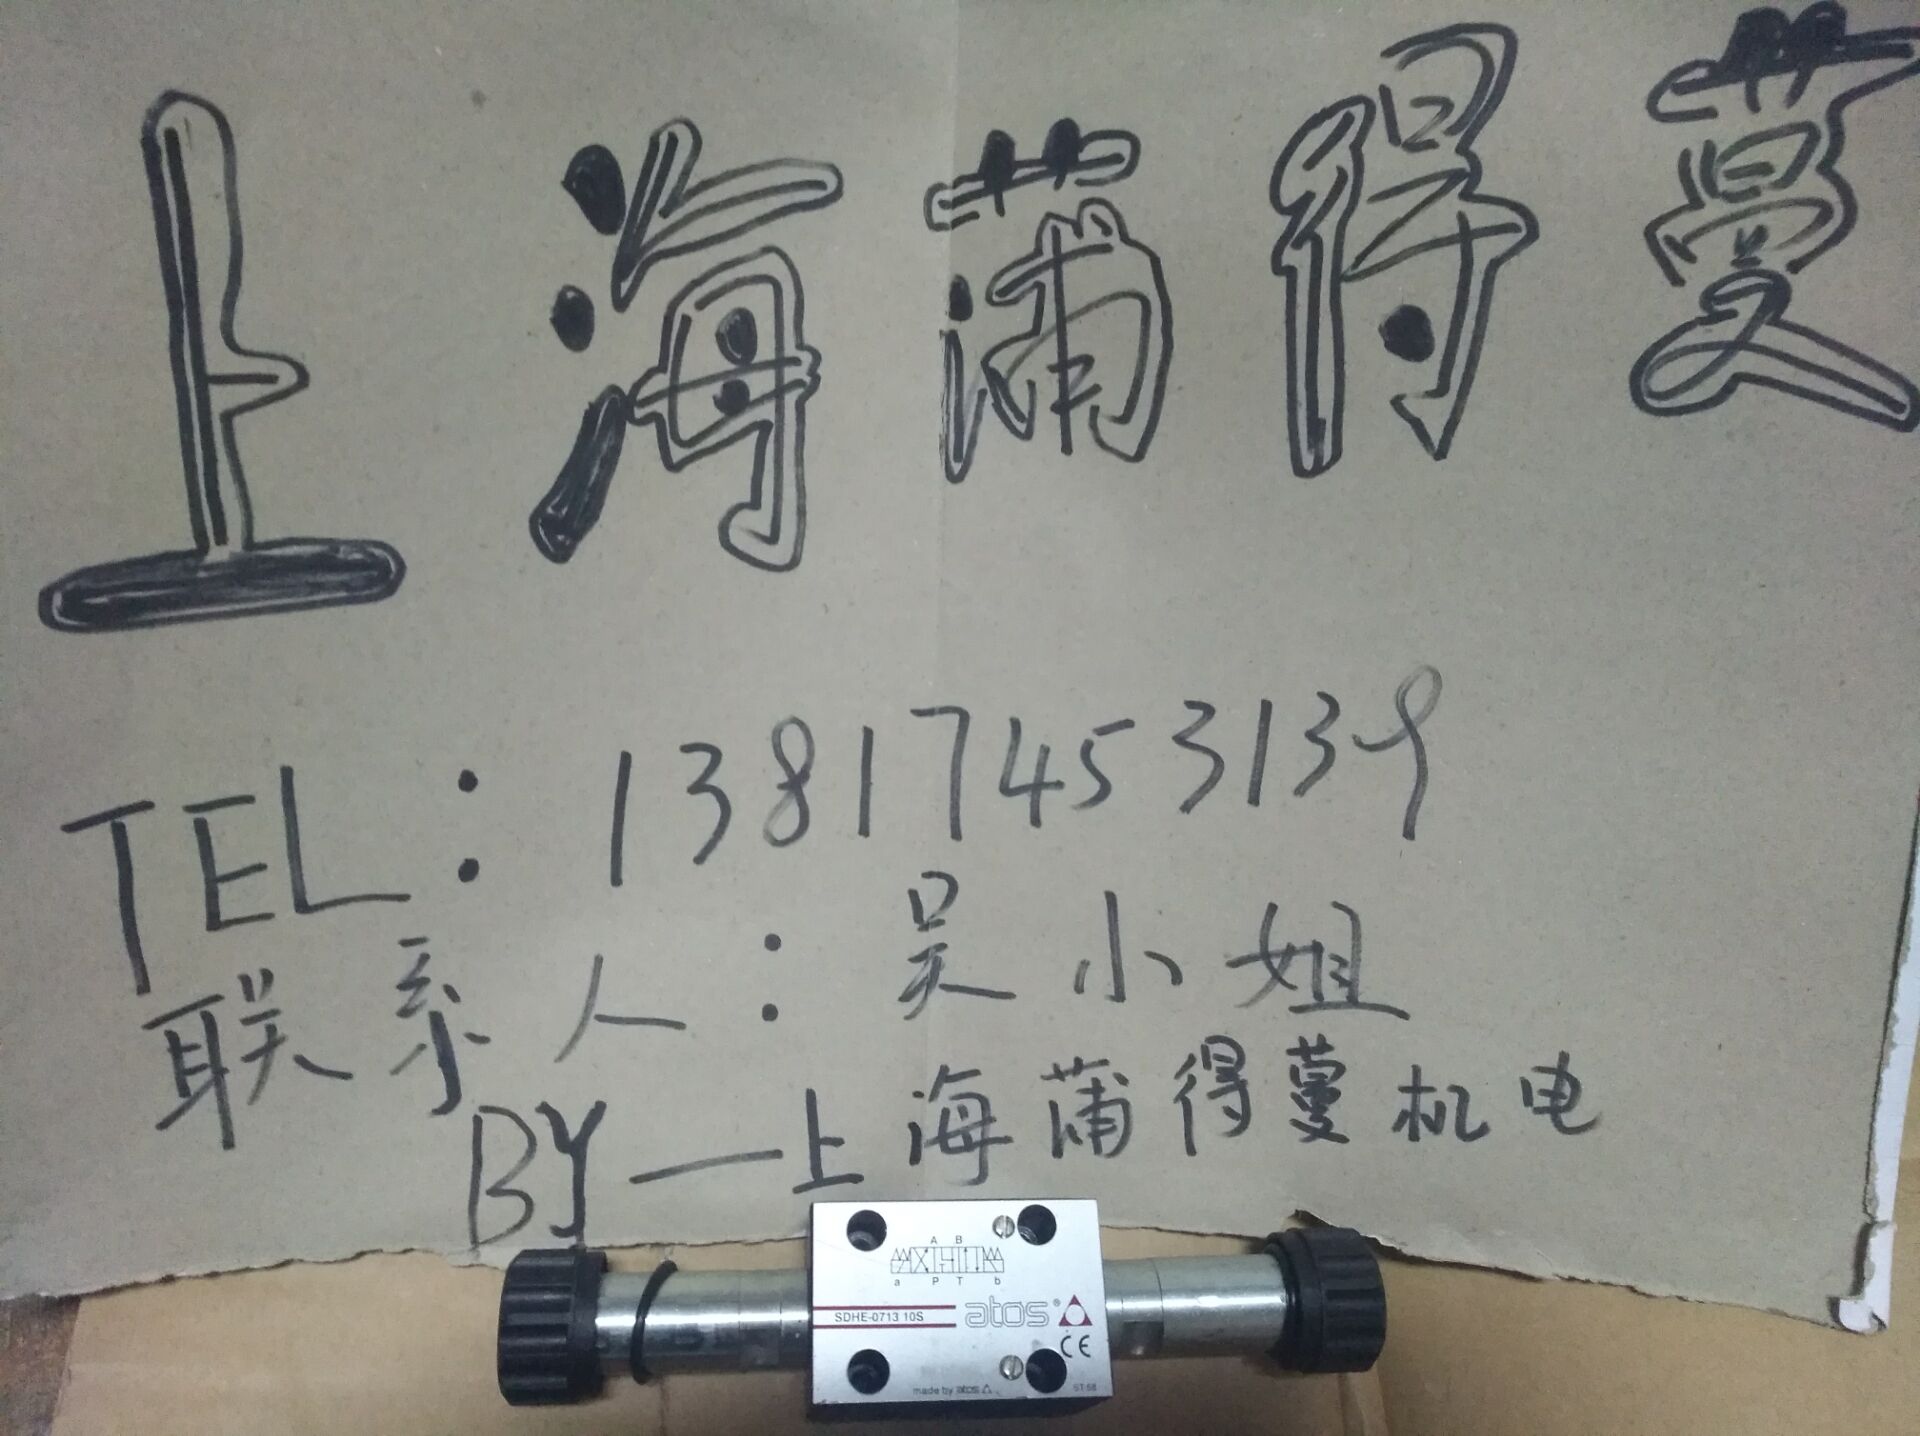 上海蒲得蔓
TEL：13817453139
联系人：吴小姐
BY—上海蒲得蔓机电
A B
a P T b
SDHE-0713 10S
atos®
CE
made by atos
ST 58